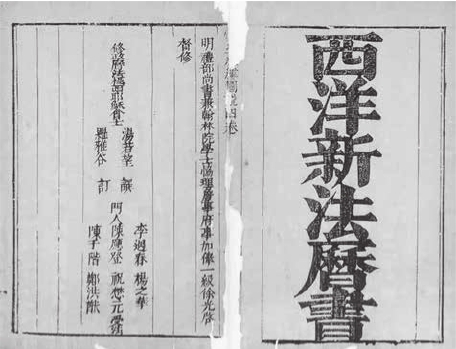 西洋新法曆書
四卷
明禮部尚書兼翰林院學士協理詹事府事加俸一級徐光啓
督修
修曆法耶穌會士
湯若望 譔
羅雅谷 訂
李遇春 楊之華
門人陳應登 祝懋元受法
陳于階 鄭洪猷